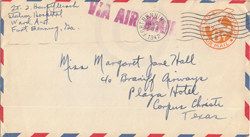 Station Hospital
Ward A-5
Fort Benning, Ga.
VIA AIR MAIL
1942
Miss Margaret Jane Hall
c/o Braniff Airways
Plaza Hotel
Corpus Christi
Texas